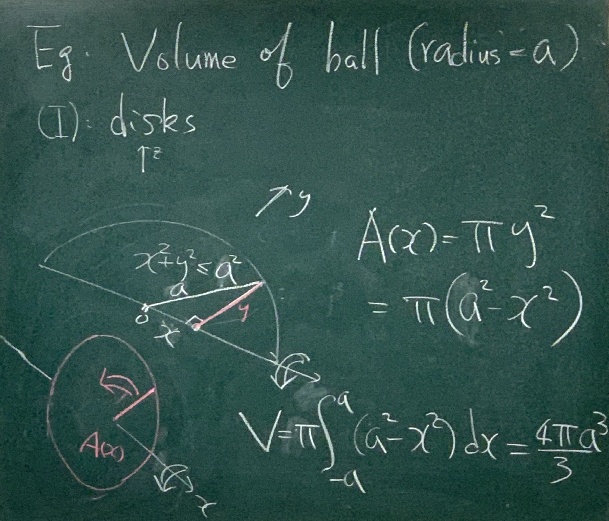 Eg. Volume of ball (radius = a)
(I): disks
↑z
↗y
x²+y²≤a²
a
0
x
y
A(x)
x
A(x) = πy²
= π(a²-x²)
V=π∫₋ₐᵃ (a²-x²) dx = 4πa³/3